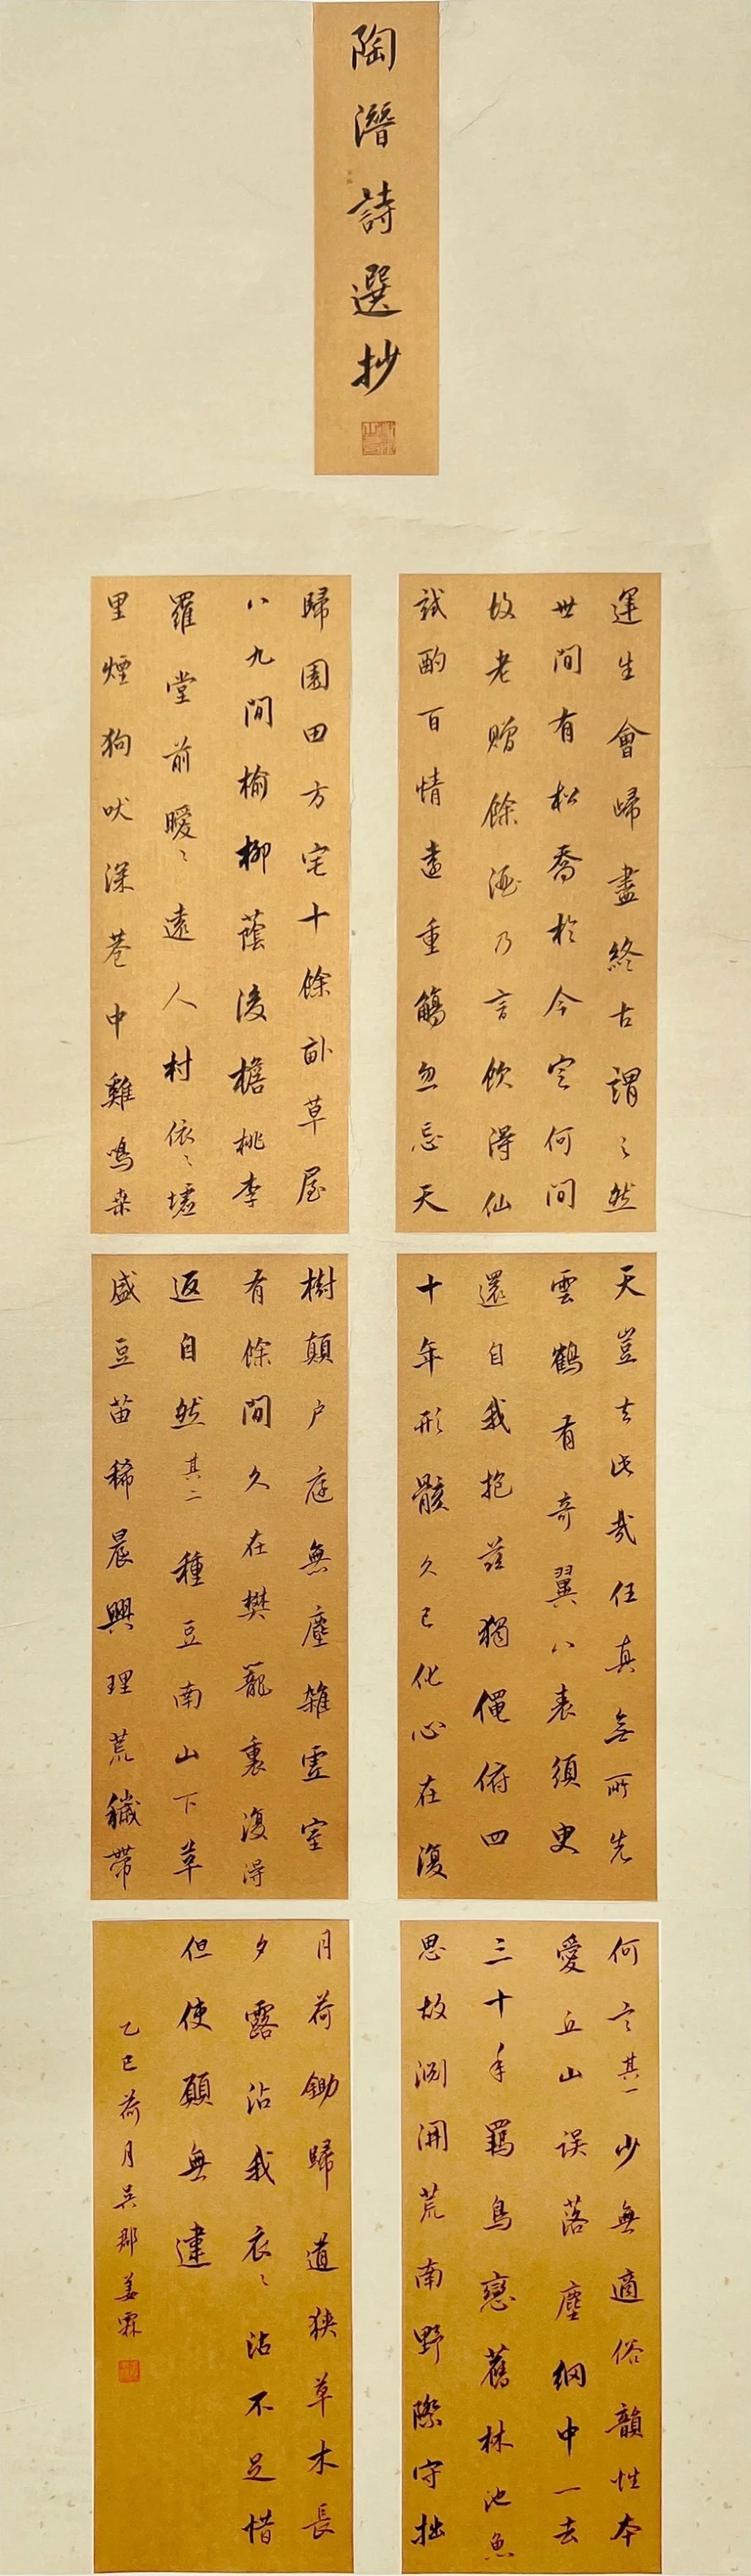 陶潛詩選抄
運生會歸盡終古謂之然
世間有松喬於今定何間
故老贈餘酒乃言飲得仙
試酌百情遠重觴忽忘天
天豈去此哉任真無所先
雲鶴有奇翼八表須臾
還自我抱茲獨僶俯四
十年形骸久已化心在復
何言其一少無適俗韻性本
愛丘山誤落塵網中一去
三十年羈鳥戀舊林池魚
思故淵開荒南野際守拙
歸園田方宅十餘畝草屋
八九間榆柳蔭後檐桃李
羅堂前曖〻遠人村依〻墟
里煙狗吠深巷中雞鳴桑
樹顛户庭無塵雜虛室
有餘間久在樊籠裏復得
返自然其二種豆南山下草
盛豆苗稀晨興理荒穢帶
月荷鋤歸道狹草木長
夕露沾我衣〻沾不足惜
但使願無違
乙巳荷月吳郡姜霖